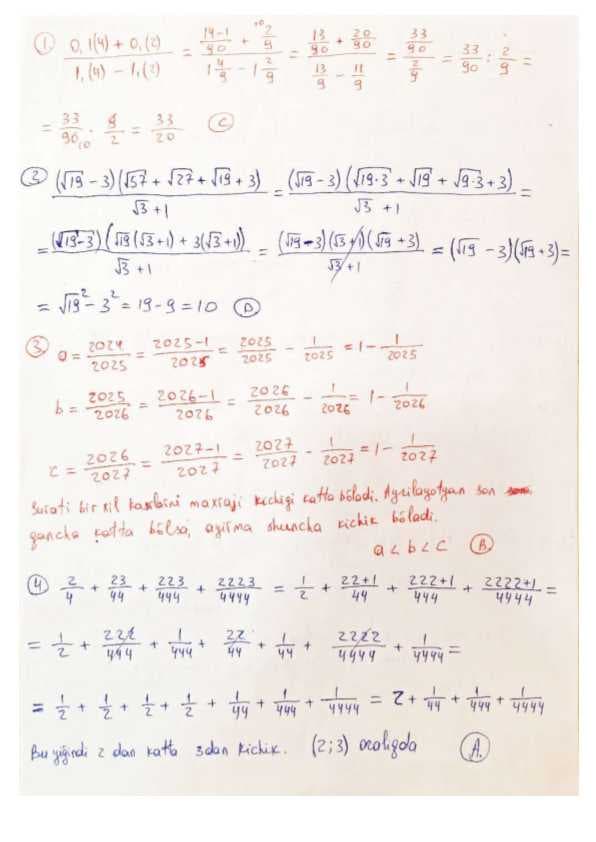 1. (0,1(4) + 0,(2)) / (1,(4) − 1,(2)) = ((14-1)/90 + ¹⁰⁾2/9) / (1 4/9 − 1 2/9) = (13/90 + 20/90) / (13/9 − 11/9) = (33/90) / (2/9) = 33/90 : 2/9 =
= 33/90₁₀ · 9/2 = 33/20 C
2. (√19 − 3)(√57 + √27 + √19 + 3) / (√3 + 1) = (√19 − 3)(√19·3 + √19 + √9·3 + 3) / (√3 + 1) =
= (√19 − 3)(√19(√3+1) + 3(√3+1)) / (√3 + 1) = (√19 − 3)(√3+1)(√19 + 3) / (√3 + 1) = (√19 − 3)(√19 + 3) =
= √19² − 3² = 19 − 9 = 10 D
3. a = 2024/2025 = (2025−1)/2025 = 2025/2025 − 1/2025 = 1 − 1/2025
b = 2025/2026 = (2026−1)/2026 = 2026/2026 − 1/2026 = 1 − 1/2026
c = 2026/2027 = (2027−1)/2027 = 2027/2027 − 1/2027 = 1 − 1/2027
Surati bir xil kasrlarni maxraji kichigi katta bo'ladi. Ayrilayotgan son
qancha katta bo'lsa, ayirma shuncha kichik bo'ladi.
a < b < c B.
4 2/4 + 23/44 + 223/444 + 2223/4444 = 1/2 + (22+1)/44 + (222+1)/444 + (2222+1)/4444 =
= 1/2 + 222/444 + 1/444 + 22/44 + 1/44 + 2222/4444 + 1/4444 =
= 1/2 + 1/2 + 1/2 + 1/2 + 1/44 + 1/444 + 1/4444 = 2 + 1/44 + 1/444 + 1/4444
Bu yig'indi 2 dan katta 3dan kichik. (2;3) oraliqda A.